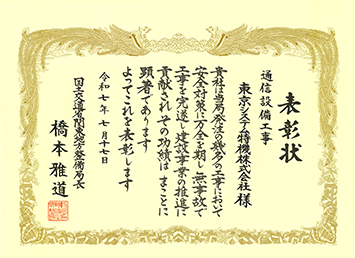 表彰状
通信設備工事
東京システム特機株式会社 様
貴社は当局発注の幾多の工事において
安全対策に万全を期し無事故で
工事を完遂し建設事業の推進に
貢献されその功績はまことに
顕著であります
よってこれを表彰します
令和七年七月十七日
国土交通省関東地方整備局長
橋本雅道